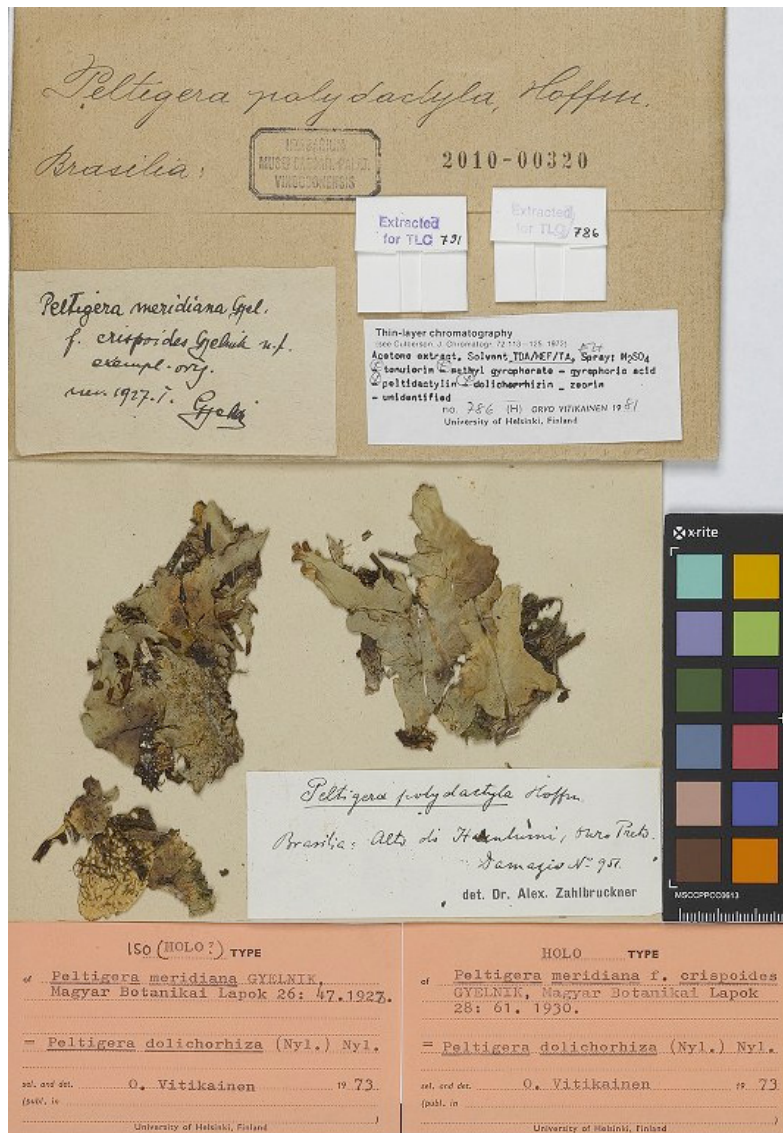 Peltigera polydactyla, Hoffm.
Brasilia:
HERBARIUM
MUSEI
VINDOBONENSIS
2010-00320
Extracted
for TLC 791
Extracted
for TLC 786
Peltigera meridiana Gyel.
f. crispoides Gyelnik n.f.
exempl. orig.
1927. I.
Thin-layer chromatography
(see Culberson, J. Chromatogr. 72:113–125. 1972)
Acetone extract. Solvent TDA/HEF/TA, Spray: H₂SO₄
tenuiorin – methyl gyrophorate – gyrophoric acid
peltidactylin – dolichorrhizin – zeorin
– unidentified
no. 786 (H) ORVO VITIKAINEN 1981
University of Helsinki, Finland
x-rite
Peltigera polydactyla Hoffm.
Brasilia: Alto di Ouro Preto.
Damazio Nº 951.
det. Dr. Alex. Zahlbruckner
MSCCPPCC0613
ISO (HOLO?) TYPE
of Peltigera meridiana GYELNIK,
Magyar Botanikai Lapok 26: 47.1927.
= Peltigera dolichorhiza (Nyl.) Nyl.
sel. and det. O. Vitikainen 1973
(publ. in )
University of Helsinki, Finland
HOLO TYPE
of Peltigera meridiana f. crispoides
GYELNIK, Magyar Botanikai Lapok
28: 61. 1930.
= Peltigera dolichorhiza (Nyl.) Nyl.
sel. and det. O. Vitikainen 1973
(publ. in )
University of Helsinki, Finland